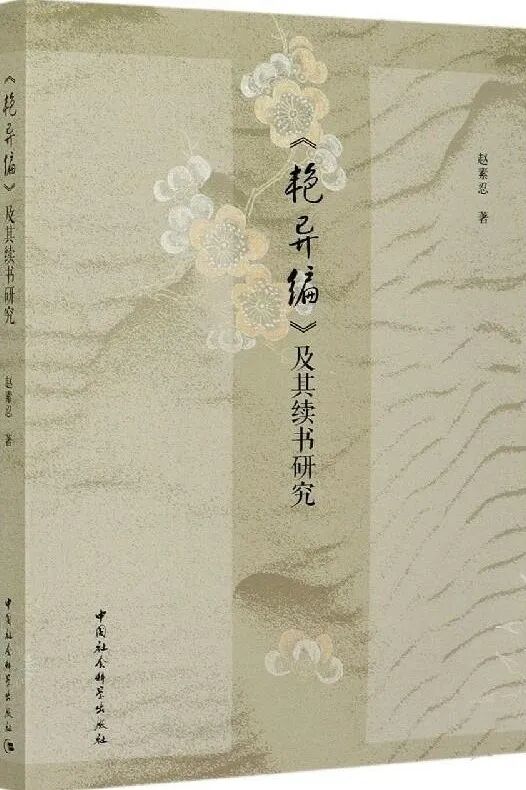 《艳异编》及其续书研究
赵素忍 著
中国社会科学出版社
《艳异编》及其续书研究
赵素忍 著
中国社会科学出版社